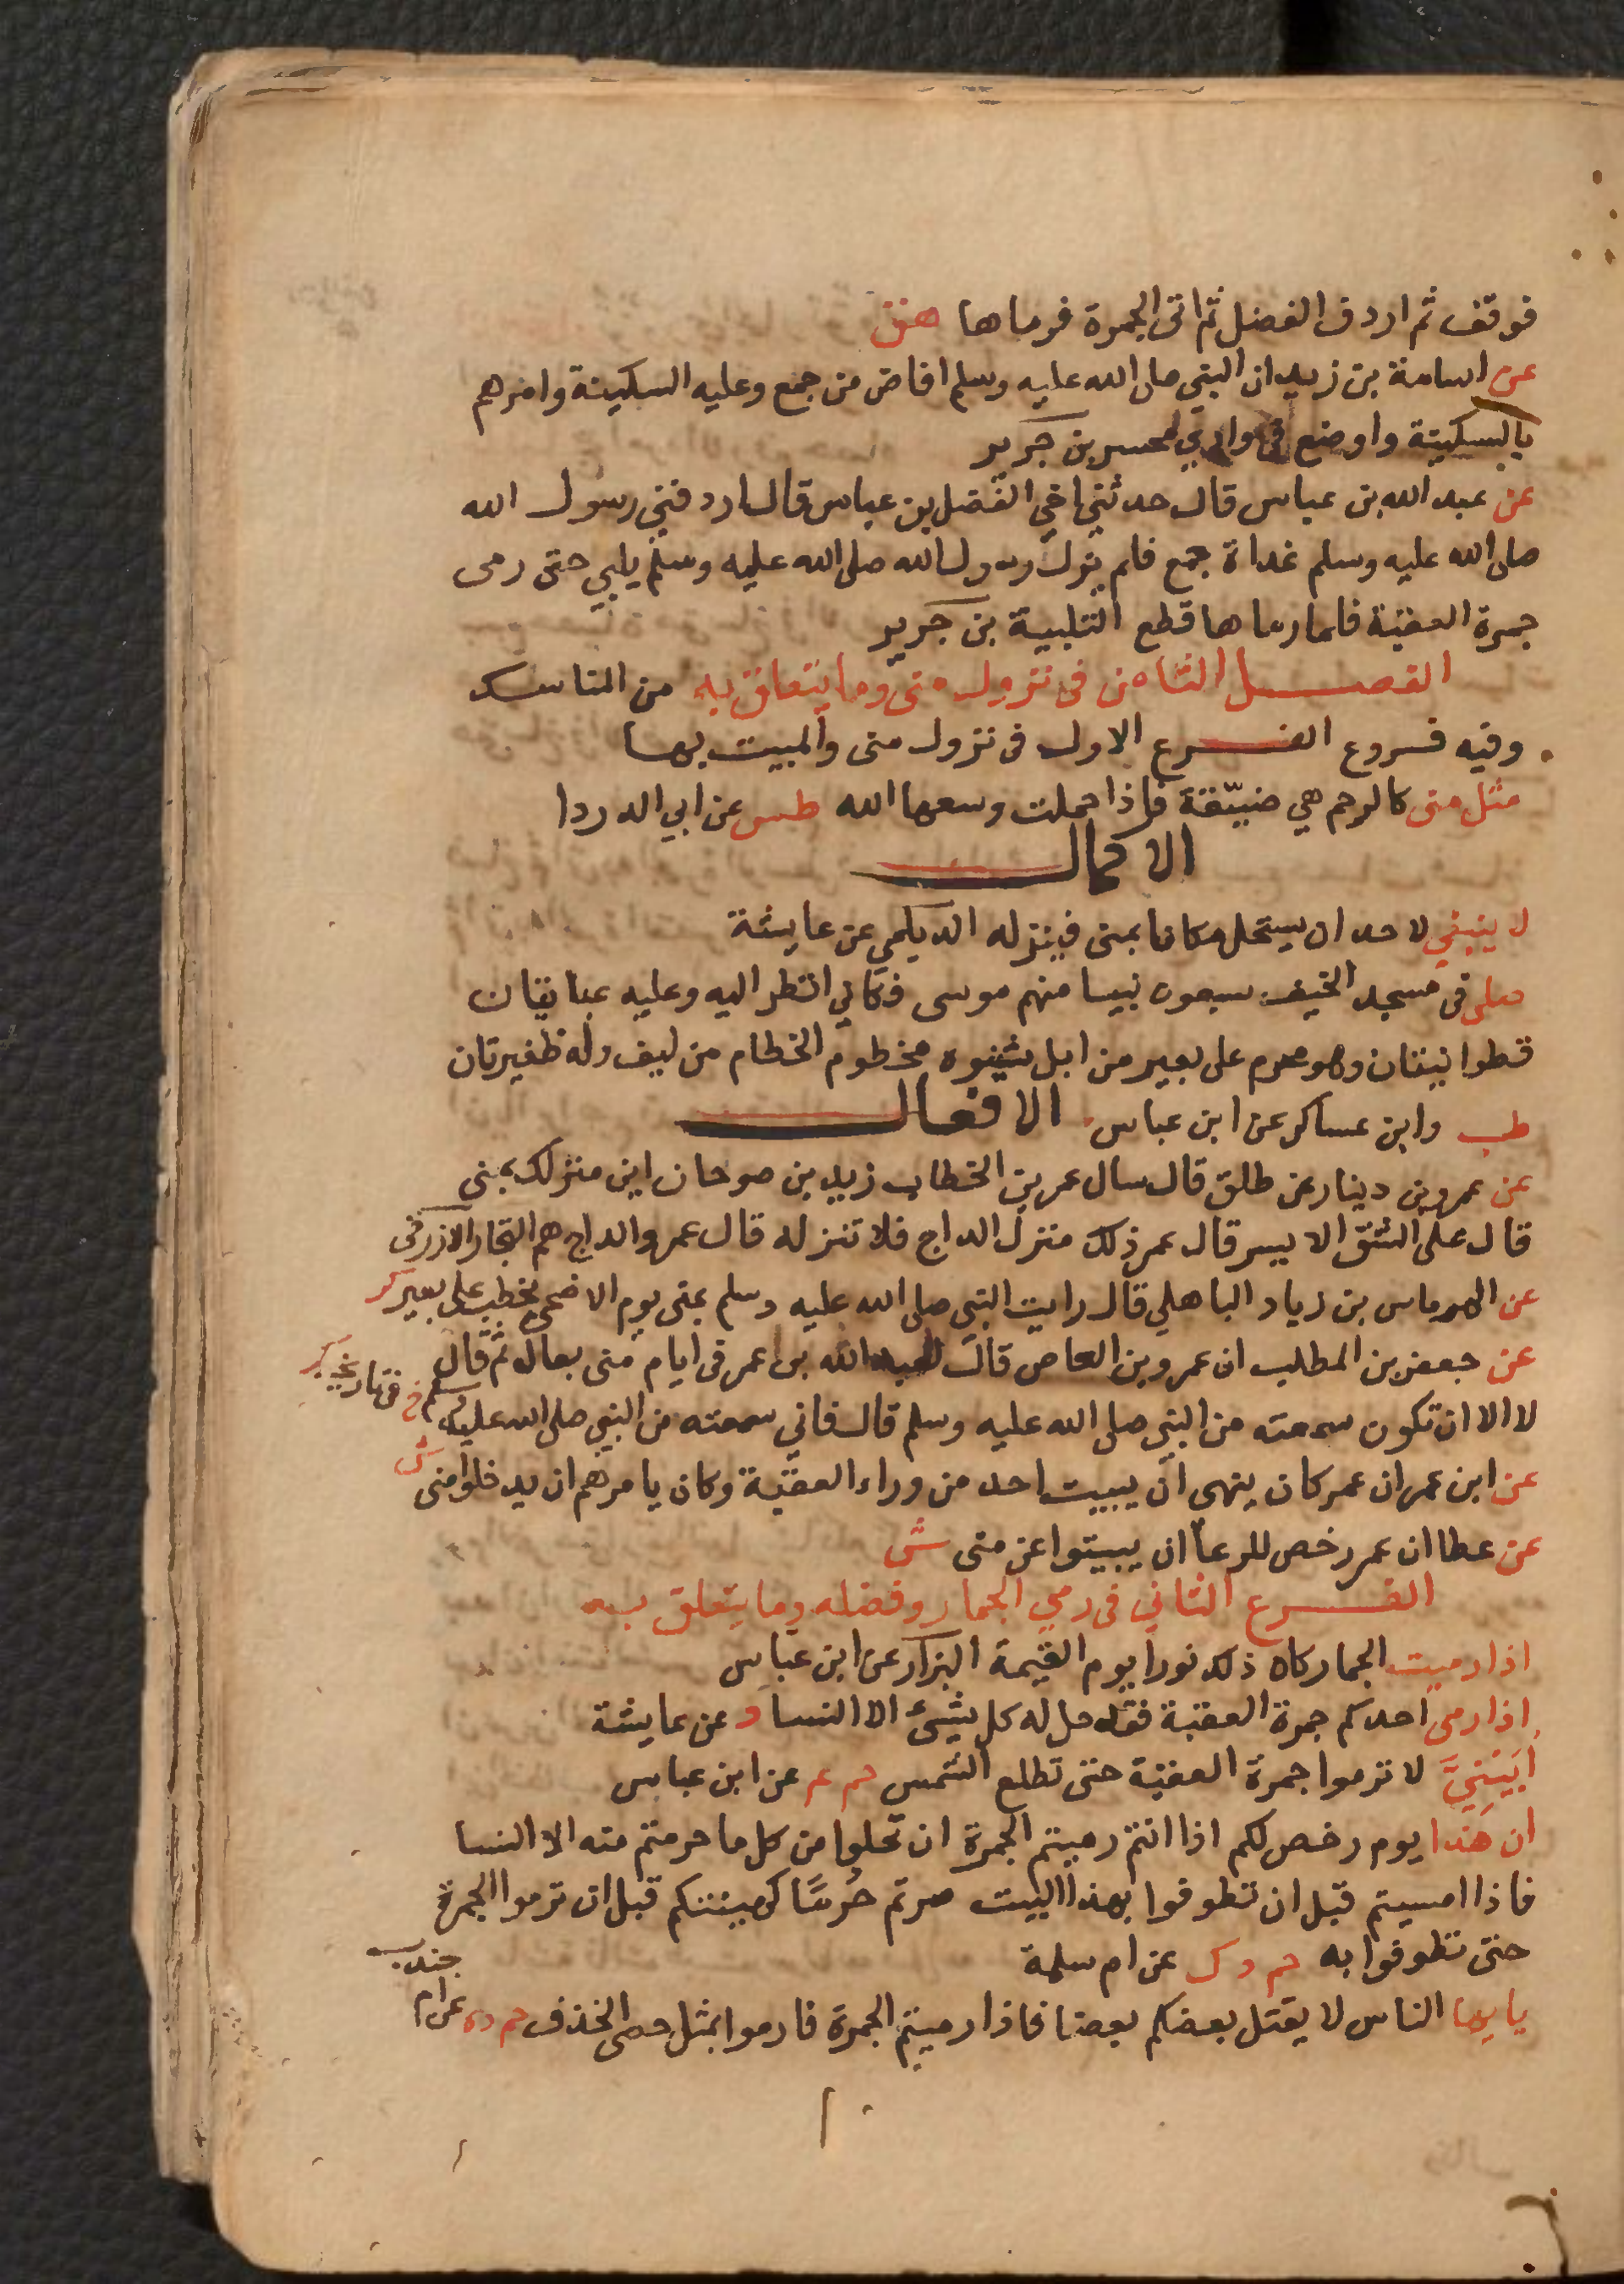 فوقف ثم اردف الفضل ثم اتى الجمرة فرماها هق
عن اسامة بن زيد ان النبي صلى الله عليه وسلم افاض من جمع وعليه السكينة وامرهم
بالسكينة واوضع في وادي محسر بن جرير
عن عبد الله بن عباس قال حدثني اخي الفضل بن عباس قال اردفني رسول الله
صلى الله عليه وسلم غداة جمع فلم يزل رسول الله صلى الله عليه وسلم يلبي حتى رمى
جمرة العقبة فلما رماها قطع التلبية بن جرير
الفصل الثامن في نزول منى وما يتعلق به من المناسك
وفيه فروع الفرع الاول في نزول منى والمبيت بها
مثل منى كالرحم هي ضيّقة فاذا حملت وسعها الله طس عن ابي الدردا
الاكمال
لا ينبغي لاحد ان يستحل مكانا بمنى فينزله الديلمي عن عايشة
صلى في مسجد الخيف سبعون نبيا منهم موسى فكاني انظر اليه وعليه عبايتان
قطوانيتان وهو محرم على بعير من ابل شنوه مخطوم الخطام من ليف وله ظفيرتان
طب وابن عساكر عن ابن عباس الافعال
عن عمرو بن دينار عن طلق قال سال عمر بن الخطاب زيد بن صوحان اين منزلك بمنى
قال على الشق الايسر قال عمر ذلك منزل الداج فلا تنزله قال عمر والداج هم التجار الازرقي
عن الهرماس بن زياد الباهلي قال رايت النبي صلى الله عليه وسلم بمنى يوم الاضحى يخطب على بعير كر
عن جعفر بن المطلب ان عمرو بن العاص قال لعبد الله بن عمر في ايام منى تعال ثم قال
لا الا ان تكون سمعته من النبي صلى الله عليه وسلم قال فاني سمعته من النبي صلى الله عليه وسلم خ في تاريخه كر
عن ابن عمر ان عمر كان ينهى ان يبيت احد من وراء العقبة وكان يامرهم ان يدخلوا منى ش
عن عطا ان عمر رخص للرعا ان يبيتوا عن منى ش
الفرع الثاني في رمي الجمار وفضله وما يتعلق به
اذا رميت الجمار كان ذلك نورا يوم القيمة البزار عن ابن عباس
اذا رمى احدكم جمرة العقبة فقد حل له كل شيء الا النسا د عن عايشة
اُبَيْنِيَّ لا ترموا جمرة العقبة حتى تطلع الشمس حم عم عن ابن عباس
ان هذا يوم رخص لكم اذا انتم رميتم الجمرة ان تحلوا من كل ما حرمتم منه الا النسا
فاذا امسيتم قبل ان تطوفوا بهذا البيت صرتم حُرمًا كهيئتكم قبل ان ترموا الجمرة
حتى تطوفوا به حم د ك عن ام سلمة
يا يها الناس لا يقتل بعضكم بعضا فاذا رميتم الجمرة فارموا بمثل حصى الخذف حم د ه عن ام
جندب